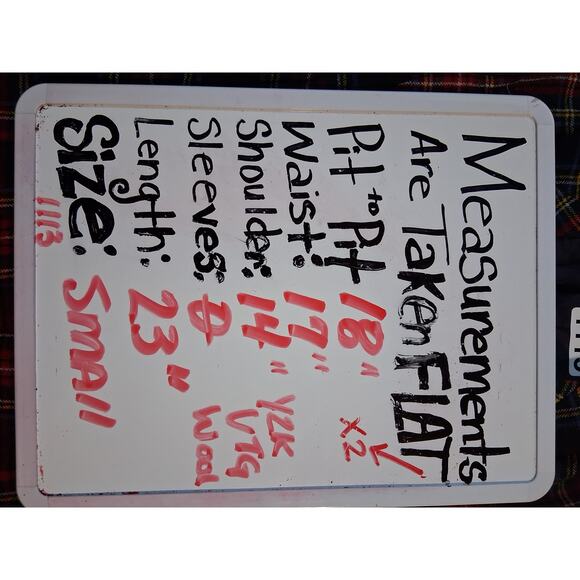 Measurements
Are Taken FLAT
Pit to Pit 18" x2
Waist: 17"
Shoulder: 14" Y2K
Sleeves: 0 VTG
Length: 23" Wool
Size: Small
1113